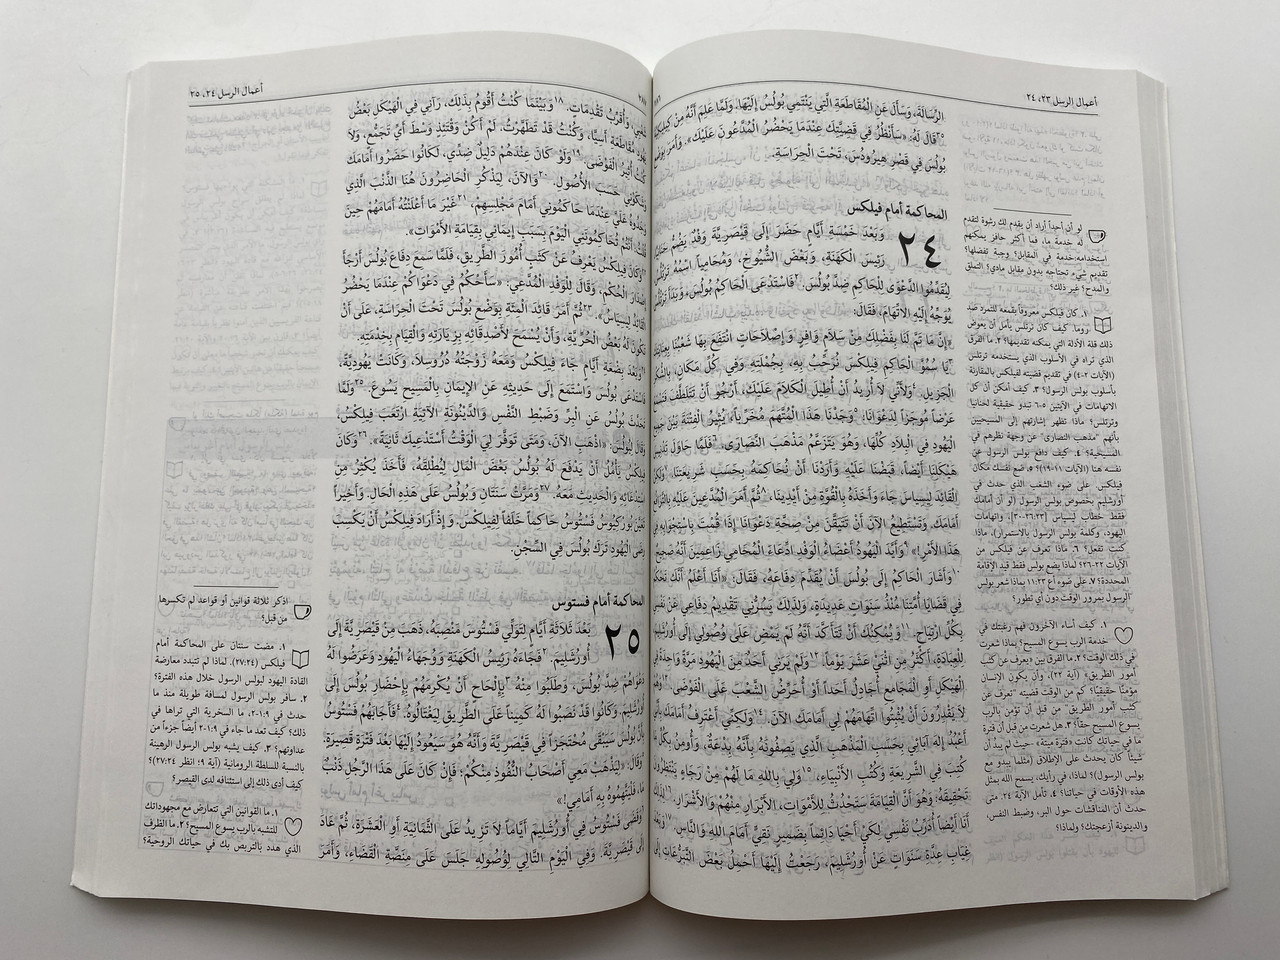 أعمال الرسل ٢٣، ٢٤
الرِّسَالَةَ، وَسَأَلَ عَنِ الْمُقَاطَعَةِ الَّتِي يَنْتَمِي بُولُسُ إِلَيْهَا. وَلَمَّا عَلِمَ أَنَّهُ مِنْ كِيلِيكِيَّةَ،
٣٥قَالَ لَهُ: «سَأَنْظُرُ فِي قَضِيَّتِكَ عِنْدَمَا يَحْضُرُ الْمُدَّعُونَ عَلَيْكَ». وَأَمَرَ
بُولُسَ فِي قَصْرِ هِيرُودُسَ، تَحْتَ الْحِرَاسَةِ.
المحاكمة أمام فيلكس
٢٤ وَبَعْدَ خَمْسَةِ أَيَّامٍ حَضَرَ إِلَى قَيْصَرِيَّةَ وَفْدٌ يَضُمُّ
رَئِيسَ الْكَهَنَةِ، وَبَعْضَ الشُّيُوخِ، وَمُحَامِياً اسْمُهُ
لِيُقَدِّمُوا الدَّعْوَى لِلْحَاكِمِ ضِدَّ بُولُسَ. ٢فَاسْتَدْعَى الْحَاكِمُ بُولُسَ، وَبَدَأَ
يُوَجِّهُ إِلَيْهِ الاتِّهَامَ، فَقَالَ:
«إِنَّ مَا تَمَّ لَنَا بِفَضْلِكَ مِنْ سَلامٍ وَافِرٍ وَإِصْلاحَاتٍ انْتَفَعَ بِهَا شَعْبُنَا
٣يَا سُمُوَّ الْحَاكِمِ فِيلِكْسَ نُرَحِّبُ بِهِ، بِجُمْلَتِهِ وَفِي كُلِّ مَكَانٍ،
الْجَزِيلِ. ٤وَلَكِنِّي لَا أُرِيدُ أَنْ أُطِيلَ الْكَلامَ عَلَيْكَ، أَرْجُو أَنْ تَتَلَطَّفَ
عَرْضاً مُوجَزاً لِدَعْوَانَا: ٥وَجَدْنَا هَذَا الْمُتَّهَمَ مُخَرِّباً، يُثِيرُ الْفِتْنَةَ بَيْنَ جَمِيعِ
الْيَهُودِ فِي الْبِلادِ كُلِّهَا، وَهُوَ يَتَزَعَّمُ مَذْهَبَ النَّصَارَى. ٦فَلَمَّا حَاوَلَ
هَيْكَلِنَا أَيْضاً، قَبَضْنَا عَلَيْهِ وَأَرَدْنَا أَنْ نُحَاكِمَهُ بِحَسَبِ شَرِيعَتِنَا.
الْقَائِدَ لِيسِيَاسَ جَاءَ وَأَخَذَهُ بِالْقُوَّةِ مِنْ أَيْدِينَا، ٨ثُمَّ أَمَرَ الْمُدَّعِينَ عَلَيْهِ
أَمَامَكَ. وَتَسْتَطِيعُ الآنَ أَنْ تَتَيَقَّنَ مِنْ صِحَّةِ دَعْوَانَا إِذَا قُمْتَ بِاسْتِجْوَابِهِ فِي
هَذَا الأَمْرِ!» ٩وَأَيَّدَ الْيَهُودُ أَعْضَاءُ الْوَفْدِ ادِّعَاءَ الْمُحَامِي زَاعِمِينَ أَنَّهُ صَحِيحٌ
١٠وَأَشَارَ الْحَاكِمُ إِلَى بُولُسَ أَنْ يُقَدِّمَ دِفَاعَهُ، فَقَالَ: «أَنَا أَعْلَمُ أَنَّكَ تَحْكُمُ
فِي قَضَايَا أُمَّتِنَا مُنْذُ سَنَوَاتٍ عَدِيدَةٍ، وَلِذَلِكَ يَسُرُّنِي تَقْدِيمُ دِفَاعِي عَنْ نَفْسِي
بِكُلِّ ارْتِيَاحٍ. ١١وَيُمْكِنُكَ أَنْ تَتَأَكَّدَ أَنَّهُ لَمْ يَمْضِ عَلَى وُصُولِي إِلَى أُورُشَلِيمَ
لِلْعِبَادَةِ، أَكْثَرُ مِنِ اثْنَيْ عَشَرَ يَوْماً. ١٢وَلَمْ يَرَنِي أَحَدٌ مِنَ الْيَهُودِ مَرَّةً وَاحِدَةً فِي
الْهَيْكَلِ أَوِ الْمَجَامِعِ أُجَادِلُ أَحَداً أَوْ أُحَرِّضُ الشَّعْبَ عَلَى الْفَوْضَى.
لَا يَقْدِرُونَ أَنْ يُثْبِتُوا اتِّهَامَهُمْ لِي أَمَامَكَ الآنَ. ١٤وَلَكِنِّي أَعْتَرِفُ أَمَامَكَ
أَعْبُدُ إِلَهَ آبَائِي بِحَسَبِ الْمَذْهَبِ الَّذِي يَصِفُونَهُ بِأَنَّهُ بِدْعَةٌ، وَأُومِنُ بِكُلِّ
كُتِبَ فِي الشَّرِيعَةِ وَكُتُبِ الأَنْبِيَاءِ، ١٥وَلِي بِاللهِ مَا لَهُمْ مِنْ رَجَاءٍ يَنْتَظِرُونَ
تَحْقِيقَهُ: وَهُوَ أَنَّ الْقِيَامَةَ سَتَحْدُثُ لِلأَمْوَاتِ، الأَبْرَارِ مِنْهُمْ وَالأَشْرَارِ.
أَنَا أَيْضاً أُدَرِّبُ نَفْسِي لِكَيْ أَحْيَا دَائِماً بِضَمِيرٍ نَقِيٍّ أَمَامَ اللهِ وَالنَّاسِ.
غِيَابِ عِدَّةِ سَنَوَاتٍ عَنْ أُورُشَلِيمَ، رَجَعْتُ إِلَيْهَا أَحْمِلُ بَعْضَ التَّبَرُّعَاتِ إِلَى
لو أن أحداً أراد أن يقدم لك رشوة لتقدم
له خدمة ما، فما أكثر حافز يمكنهم
استخدامه: خدمة في المقابل؟ وجبة تفضلها؟
تقديم شيء تحتاجه بدون مقابل مادي؟ التملق
والمدح؟ غير ذلك؟
١. كان فيلكس معروفاً بقمعه للتمرد ضد
روما. كيف كان ترتلس يأمل أن يعوض
ذلك قلة الأدلة التي يمكنه تقديمها؟ ٢. ما الفرق
الذي تراه في الأسلوب الذي يستخدمه ترتلس
(الآيات ٢-٤) في تقديم قضيته لفيلكس بالمقارنة
بأسلوب بولس الرسول؟ ٣. كيف أمكن أن كل
الاتهامات في الآيتين ٥-٦ تبدو حقيقية لحنانيا
وترتلس؟ ماذا تظهر إشارتهم إلى المسيحيين
بأنهم "مذهب النصارى" عن وجهة نظرهم في
المسيحية؟ ٤. كيف دافع بولس الرسول عن
نفسه هنا (الآيات ١١-١٩)؟ ٥. ضع نفسك مكان
فيلكس. على ضوء الشغب الذي حدث في
أورشليم بخصوص بولس الرسول (لو أن أمامك
فقط خطاب ليسياس [٢٣:٢٦-٣٠]، واتهامات
اليهود، وكلمة بولس الرسول بالاستمرار)، ماذا
كنت تفعل؟ ٦. ماذا تعرف عن فيلكس من
الآيات ٢٢-٢٦؟ لماذا يضع بولس فقط قيد الإقامة
المحددة؟ ٧. على ضوء أع ٢٣:١١ بماذا شعر بولس
الرسول بمرور الوقت دون أي تطور؟
١. كيف أساء الآخرون فهم رغبتك في
خدمة الرب يسوع المسيح؟ بماذا شعرت
في ذلك الوقت؟ ٢. ما الفرق بين «يعرف عن كثب
أمور الطريق» (آية ٢٢)، وأن يكون الإنسان
مؤمناً حقيقياً؟ كم من الوقت قضيته "تعرف عن
كثب أمور الطريق" من قبل أن تؤمن بالرب
يسوع المسيح حقاً؟ ٣. هل شعرت من قبل أن فترة
ما في حياتك كانت «فترة ميتة» - حيث لم يبد أن
شيئاً كان يحدث على الإطلاق (مثلما يبدو مع
بولس الرسول)؟ لماذا، في رأيك، يسمح الله بمثل
هذه الأوقات في حياتنا؟ ٤. تأمل الآية ٢٤. متى
حدث أن المناقشات حول البر، وضبط النفس،
والدينونة أزعجتك؟ ولماذا؟
أعمال الرسل ٢٤، ٢٥
وَأُقَرِّبُ تَقْدِمَاتٍ. ١٨وَبَيْنَمَا كُنْتُ أَقُومُ بِذَلِكَ، رَآنِي فِي الْهَيْكَلِ بَعْضُ
مُقَاطَعَةِ أَسِيَّا، وَكُنْتُ قَدْ تَطَهَّرْتُ. لَمْ أَكُنْ وَقْتَئِذٍ وَسَطَ أَيِّ تَجَمُّعٍ، وَلا
كُنْتُ أُثِيرُ الْفَوْضَى. ١٩وَلَوْ كَانَ عِنْدَهُمْ دَلِيلٌ ضِدِّي، لَكَانُوا حَضَرُوا أَمَامَكَ
حَسَبَ الأُصُولِ. ٢٠وَالآنَ، لِيَذْكُرِ الْحَاضِرُونَ هُنَا الذَّنْبَ الَّذِي
عَلَيَّ عِنْدَمَا حَاكَمُونِي أَمَامَ مَجْلِسِهِمْ، ٢١غَيْرَ مَا أَعْلَنْتُهُ أَمَامَهُمْ حِينَ
قُلْتُ: أَنْتُمْ تُحَاكِمُونَنِي الْيَوْمَ بِسَبَبِ إِيمَانِي بِقِيَامَةِ الأَمْوَاتِ».
كَانَ فِيلِكْسُ يَعْرِفُ عَنْ كَثَبٍ أُمُورَ الطَّرِيقِ، فَلَمَّا سَمِعَ دِفَاعَ بُولُسَ أَرْجَأَ
إِصْدَارَ الْحُكْمِ، وَقَالَ لِلْوَفْدِ الْمُدَّعِي: «سَأَحْكُمُ فِي دَعْوَاكُمْ عِنْدَمَا يَحْضُرُ
الْقَائِدُ لِيسِيَاسُ». ٢٣ثُمَّ أَمَرَ قَائِدَ الْمِئَةِ بِوَضْعِ بُولُسَ تَحْتَ الْحِرَاسَةِ، عَلَى أَنْ
تَكُونَ لَهُ بَعْضُ الْحُرِّيَّةِ، وَأَنْ يُسْمَحَ لأَصْدِقَائِهِ بِزِيَارَتِهِ وَالْقِيَامِ بِخِدْمَتِهِ.
وَبَعْدَ بِضْعَةِ أَيَّامٍ جَاءَ فِيلِكْسُ وَمَعَهُ زَوْجَتُهُ دُرُوسِلا، وَكَانَتْ يَهُودِيَّةً،
فَاسْتَدْعَى بُولُسَ وَاسْتَمَعَ إِلَى حَدِيثِهِ عَنِ الإِيمَانِ بِالْمَسِيحِ يَسُوعَ. ٢٥وَلَمَّا
تَحَدَّثَ بُولُسُ عَنِ الْبِرِّ وَضَبْطِ النَّفْسِ وَالدَّيْنُونَةِ الآتِيَةِ ارْتَعَبَ فِيلِكْسُ،
وَقَالَ لِبُولُسَ: «اذْهَبِ الآنَ، وَمَتَى تَوَفَّرَ لِيَ الْوَقْتُ أَسْتَدْعِيكَ ثَانِيَةً». ٢٦وَكَانَ
فِيلِكْسُ يَأْمُلُ أَنْ يَدْفَعَ لَهُ بُولُسُ بَعْضَ الْمَالِ لِيُطْلِقَهُ، فَأَخَذَ يُكْثِرُ مِنِ
اسْتِدْعَائِهِ وَالْحَدِيثِ مَعَهُ. ٢٧وَمَرَّتْ سَنَتَانِ وَبُولُسُ عَلَى هَذِهِ الْحَالِ. وَأَخِيراً
تَعَيَّنَ بُورْكِيُوسُ فَسْتُوسُ حَاكِماً خَلَفاً لِفِيلِكْسَ. وَإِذْ أَرَادَ فِيلِكْسُ أَنْ يَكْسِبَ
رِضَى الْيَهُودِ تَرَكَ بُولُسَ فِي السِّجْنِ.
المحاكمة أمام فستوس
٢٥ بَعْدَ ثَلاثَةِ أَيَّامٍ لِتَوَلِّي فَسْتُوسَ مَنْصِبَهُ، ذَهَبَ مِنْ قَيْصَرِيَّةَ إِلَى
أُورُشَلِيمَ. ٢فَجَاءَهُ رَئِيسُ الْكَهَنَةِ وَوُجَهَاءُ الْيَهُودِ وَعَرَضُوا لَهُ
دَعْوَاهُمْ ضِدَّ بُولُسَ، وَطَلَبُوا مِنْهُ ٣بِإِلْحَاحٍ أَنْ يُكْرِمَهُمْ بِإِحْضَارِ بُولُسَ إِلَى
أُورُشَلِيمَ. وَكَانُوا قَدْ نَصَبُوا لَهُ كَمِيناً عَلَى الطَّرِيقِ لِيَغْتَالُوهُ. ٤فَأَجَابَهُمْ فَسْتُوسُ
بِأَنَّ بُولُسَ سَيَبْقَى مُحْتَجَزاً فِي قَيْصَرِيَّةَ وَأَنَّهُ هُوَ سَيَعُودُ إِلَيْهَا بَعْدَ فَتْرَةٍ قَصِيرَةٍ.
وَقَالَ: «لِيَذْهَبْ مَعِي أَصْحَابُ النُّفُوذِ مِنْكُمْ: فَإِنْ كَانَ عَلَى هَذَا الرَّجُلِ ذَنْبٌ
مَا، فَلْيَتَّهِمُوهُ بِهِ أَمَامِي!»
وَقَضَى فَسْتُوسُ فِي أُورُشَلِيمَ أَيَّاماً لَا تَزِيدُ عَلَى الثَّمَانِيَةِ أَوِ الْعَشَرَةِ، ثُمَّ عَادَ
إِلَى قَيْصَرِيَّةَ. وَفِي الْيَوْمِ التَّالِي لِوُصُولِهِ جَلَسَ عَلَى مِنَصَّةِ الْقَضَاءِ، وَأَمَرَ
اذكر ثلاثة قوانين أو قواعد لم تكسرها
من قبل؟
١. مضت سنتان على المحاكمة أمام
فيلكس (٢٧:٢٤). لماذا لم تتبدد معارضة
القادة اليهود لبولس الرسول خلال هذه الفترة؟
٢. سافر بولس الرسول لمسافة طويلة منذ ما
حدث في ٩:١-٢. ما السخرية التي تراها في
ذلك؟ كيف تعد ما جاء في ٩:١-٢ أيضاً جزءاً من
عداوتهم؟ ٣. كيف يشبه بولس الرسول الرهينة
بالنسبة للسلطة الرومانية (آية ٩؛ انظر ٢٧:٢٤)؟
كيف أدى ذلك إلى استئنافه لدى القيصر؟
١. ما القوانين التي تتعارض مع مجهوداتك
للتشبه بالرب يسوع المسيح؟ ٢. ما الظرف
الذي هدد بالتربص بك في حياتك الروحية؟